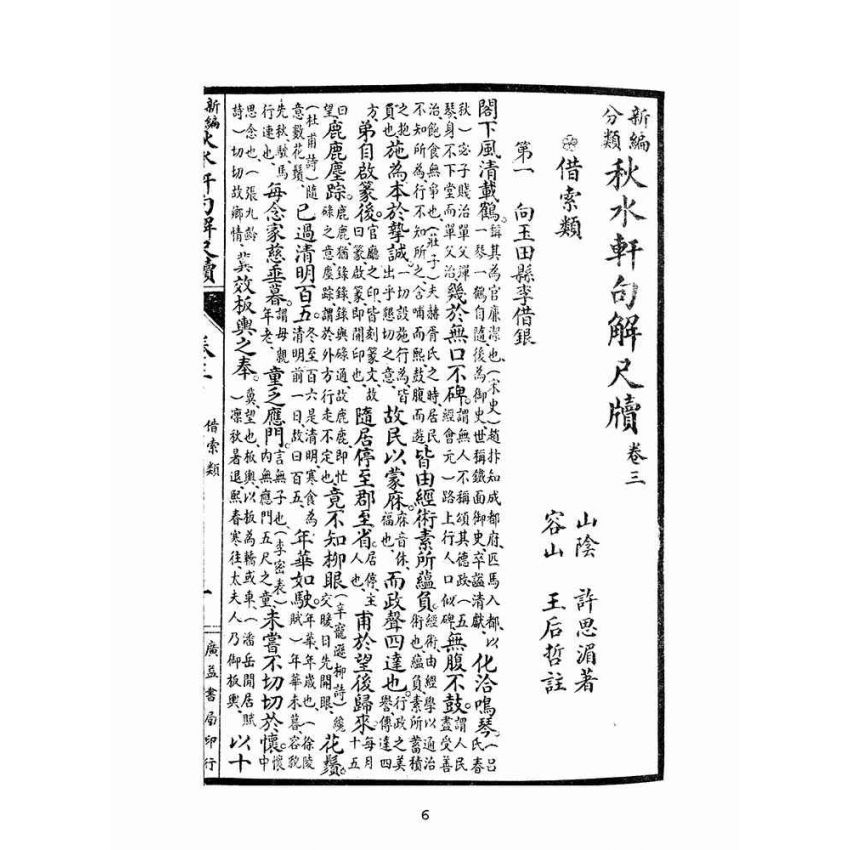 新編分類 秋水軒句解尺牘 卷三
山陰 許思湄著
容山 王后哲註
借索類
第一 向玉田縣李借銀
閣下風清載鶴。謂其為官廉潔也、(宋史)趙抃知成都府、匹馬入都、以一琴一鶴自隨、後為御史、世稱鐵面御史、卒謚清獻、化洽鳴琴、(呂氏春
秋)宓子賤治單父、彈琴、身不下堂、而單父治、幾於無口不碑。謂無人不稱頌其德政、(五經會元)一路上行人口似碑、無腹不鼓。謂人民盡受善
治、飽食無事也、(莊子)夫赫胥氏之時、居民不知所為、行不知所之、含哺而熙、鼓腹而遊、皆由經術素所蘊負。經術、由經學以通治術也、蘊負、素所蓄積
之抱負也、施為本於摯誠。一切設施行為、皆出乎懇切之意、故民以蒙庥。庥音休、福也、而政聲四達也。行政之美譽、傳達四
方、弟自啟篆後。官廳之印、皆刻篆文、故曰篆、啟篆、即開印也、隨居停至郡至省。居停、主人也、甫於望後歸來。每月十五
曰望、鹿鹿塵踪。鹿鹿、猶錄錄、錄與碌通、故鹿鹿、即忙碌之意、塵踪、謂於外方行走不定也、竟不知柳眼(辛寵遜柳詩)纔交暖日先開眼、花鬚。
(杜甫詩)隨意數花鬚、已過清明百五。冬至百六是清明、寒食為清明前一日、故曰百五、年華如駛。年華、年歲也、(徐陵賦)年華未暮、容貌
先秋、駛、馬行速也、每念家慈垂暮。謂母親年老、童乏應門。言無子也、(李密表)內無應門五尺之童、未嘗不切切於懷。懷中
思念也、(張九齡詩)切切故鄉情、冀效板輿之奉。冀、望也、板輿、以板為轎或車、(潘岳閒居賦)凜秋暑退、熙春寒往、太夫人乃御板輿、以十
新編秋水軒句解尺牘 卷三 借索類 一 廣益書局印行
6